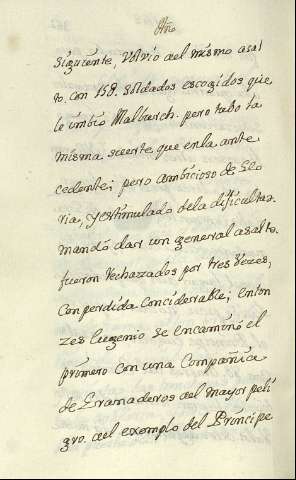 Año
siguiente, volvio ael mismo asal
to. con 158. soldados escogidos que
le imbio Malburch. pero tubo la
misma suerte que enla ante
cedente; pero ambicioso de Glo
ria, y estimulado dela dificultaz.
mandó dar un general asalto.
fueron rechazados por tres vezes,
con perdida conciderable; enton
zes Eugenio se encaminó el
primero con una Compañia
de Gramaderos ael mayor peli
gro. ael exemplo del Principe